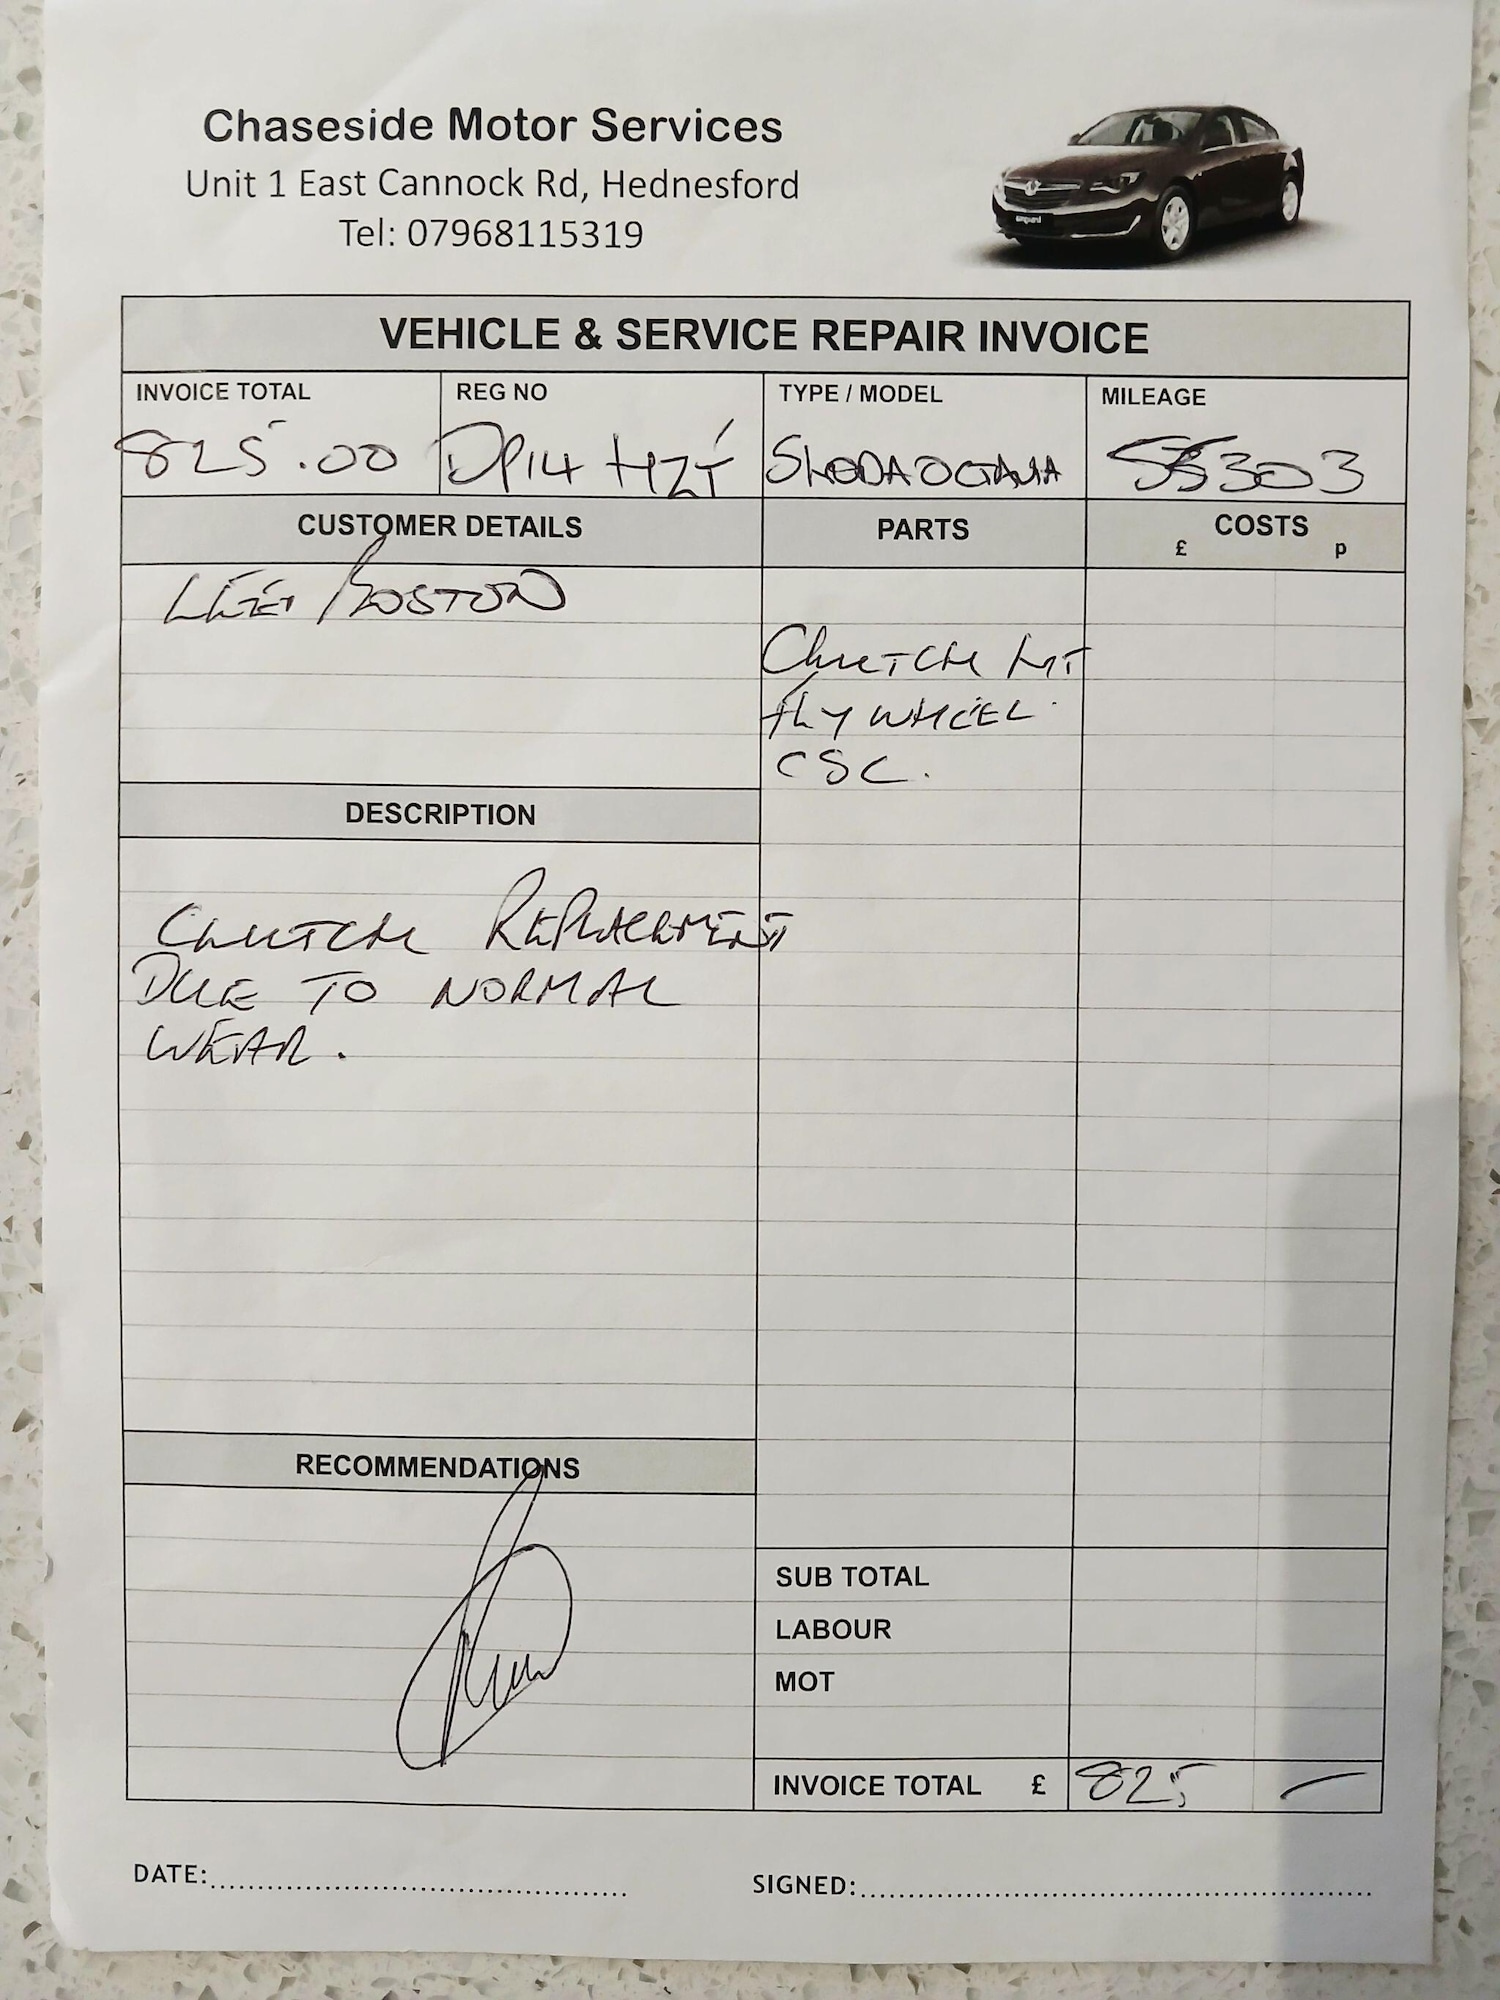 Chaseside Motor Services
Unit 1 East Cannock Rd, Hednesford
Tel: 07968115319
VEHICLE & SERVICE REPAIR INVOICE
INVOICE TOTAL REG NO TYPE / MODEL MILEAGE
825.00 DP14 HZT SKODA OCTAVIA 55303
CUSTOMER DETAILS PARTS COSTS
£ p
LEE BOSTON
CLUTCH KIT
FLYWHEEL
CSC.
DESCRIPTION
CLUTCH REPLACEMENT
DUE TO NORMAL
WEAR.
RECOMMENDATIONS
SUB TOTAL
LABOUR
MOT
INVOICE TOTAL £ 825 —
DATE: SIGNED: